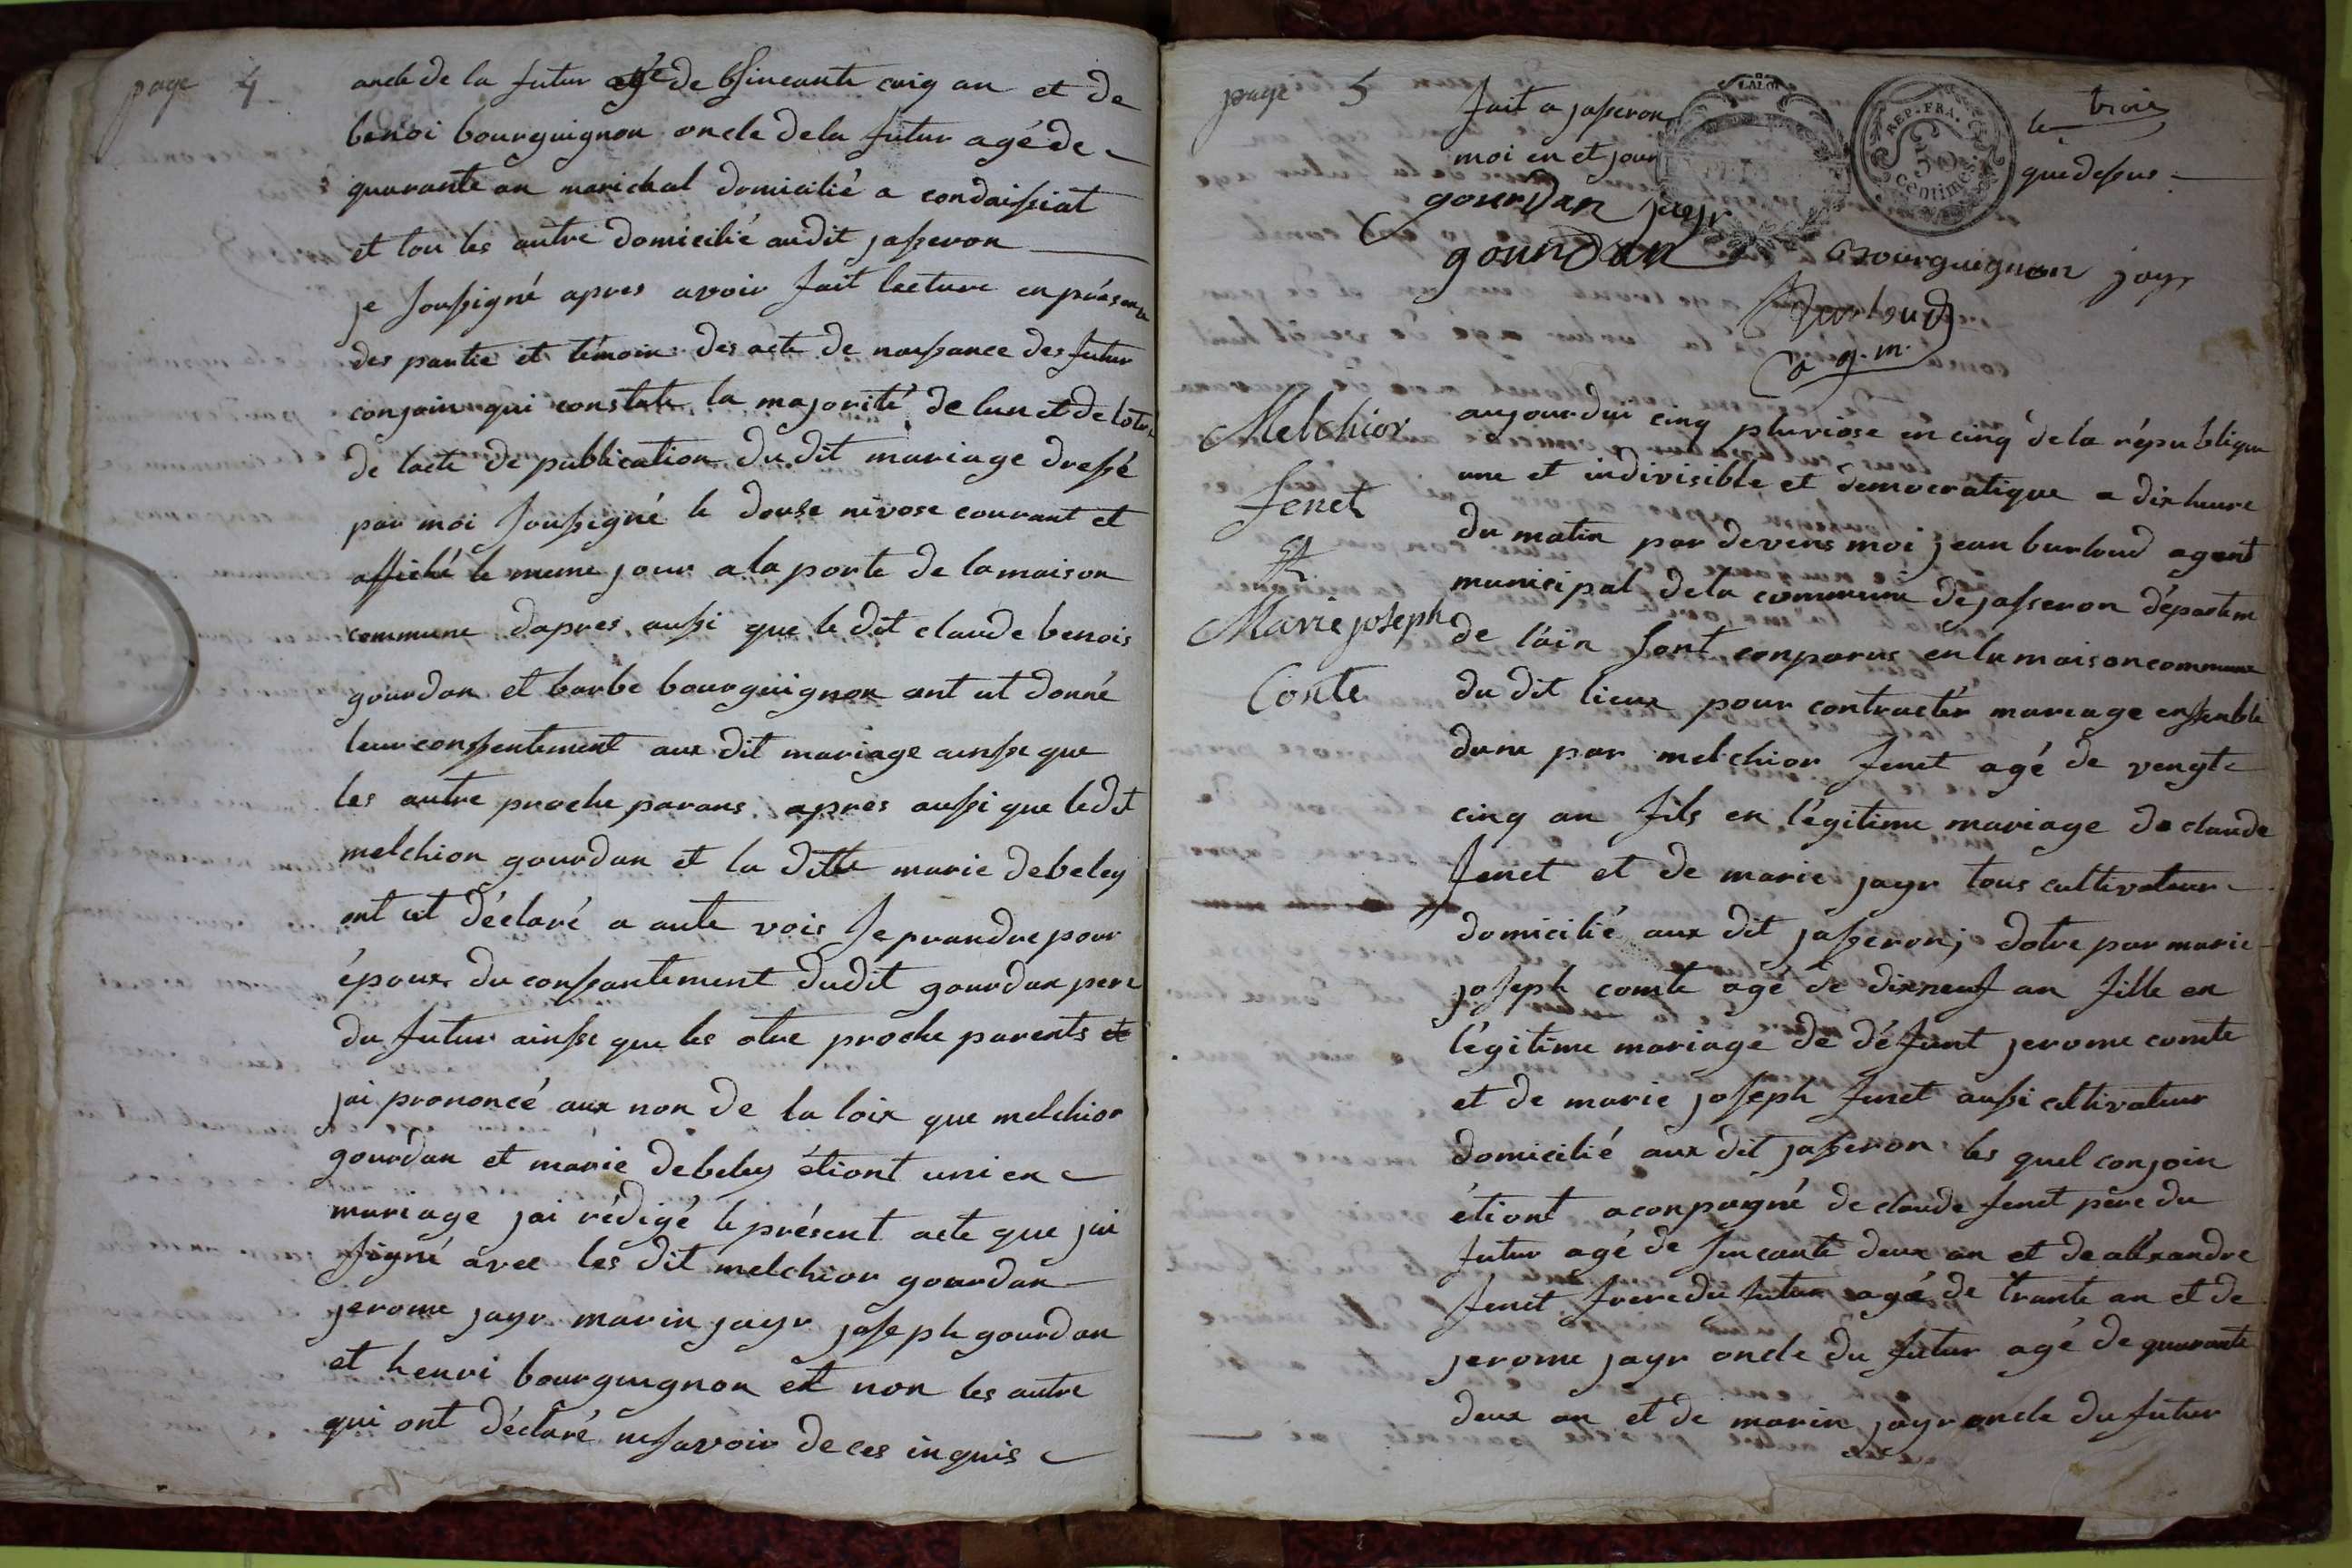 page 4
oncle de la futur agé de Sincante cinq an et de
benoi bourguignon oncle dela futur agé de
quarante an marichal domicilié a condaissiat
et tou les autre domicilié audit jasseron
je soussigné apres avoir fait lecture en présence
des partie et témoin des acte de naissance des futur
conjoin qui constate la majorité de lun et de lotre
de lacte de publication du dit mariage dressé
par moi soussigné le douse nivose courant et
affiché le meme jour a la porte de la maison
commune dapres aussi que le dit claude benois
gourdan et barbe bourguignon ont ut donné
leur conssentement aux dit mariage ainsse que
les autre proche parans apres aussi que le dit
melchior gourdan et la ditte marie debeley
ont ut déclaré a aute vois se prandre pour
époux du conssantement dudit gourdan pere
du futur ainsse que les otre proche parents et
jai prononcé aux non de la loix que melchior
gourdan et marie debeley étiont uni en
mariage jai rédigé le présent acte que jai
signé avec les dit melchior gourdan
jerome jayr marin jayr joseph gourdan
et henri bourguignon et non les autre
qui ont déclaré ne savoir de ces inquis
page 5
fait a jasseron le trois
moi en et jour que dessus
LA LOI
REP. FRA.
50
centimes
gourdan jayr
gourdan bourguignon jayr
Burloud
a g. m.
Melchior
fenet
et
Marie joseph
Conte
aujourdui cinq pluviose en cinq de la république
une et indivisible et démocratique a dix heure
du matin par devens moi jean burloud agent
municipal dela commune de jasseron départeme
de l'ain sont conparus en la maison commune
du dit lieux pour contractér mareage enssemble
dune par melchior fenet agé de vengt
cinq an fils en légitime mariage de claude
fenet et de marie jayr tous cultivateur
domicilié aux dit jasseron; dotre par marie
joseph comte agé de dix neuf an fille en
légitime mariage de défunt jerome comte
et de marie joseph fenet aussi cultivateur
domicilié aux dit jasseron les quel conjoin
étiont aconpagné de claude fenet pere du
futur agé de sincante deux an et de aléxandre
fenet frere du futur agé de trante an et de
jerome jayr oncle du futur agé de quarante
deux an et de marin jayr oncle du futur